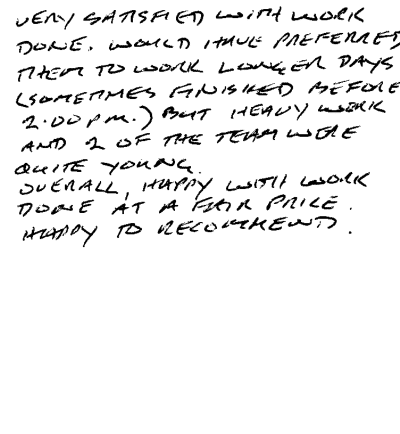 VERY SATISFIED WITH WORK
DONE. WOULD HAVE PREFERRED
THEM TO WORK LONGER DAYS
(SOMETIMES FINISHED BEFORE
2.00 PM.) BUT HEAVY WORK
AND 2 OF THE TEAM WERE
QUITE YOUNG.
OVERALL, HAPPY WITH WORK
DONE AT A FAIR PRICE.
HAPPY TO RECOMMEND.